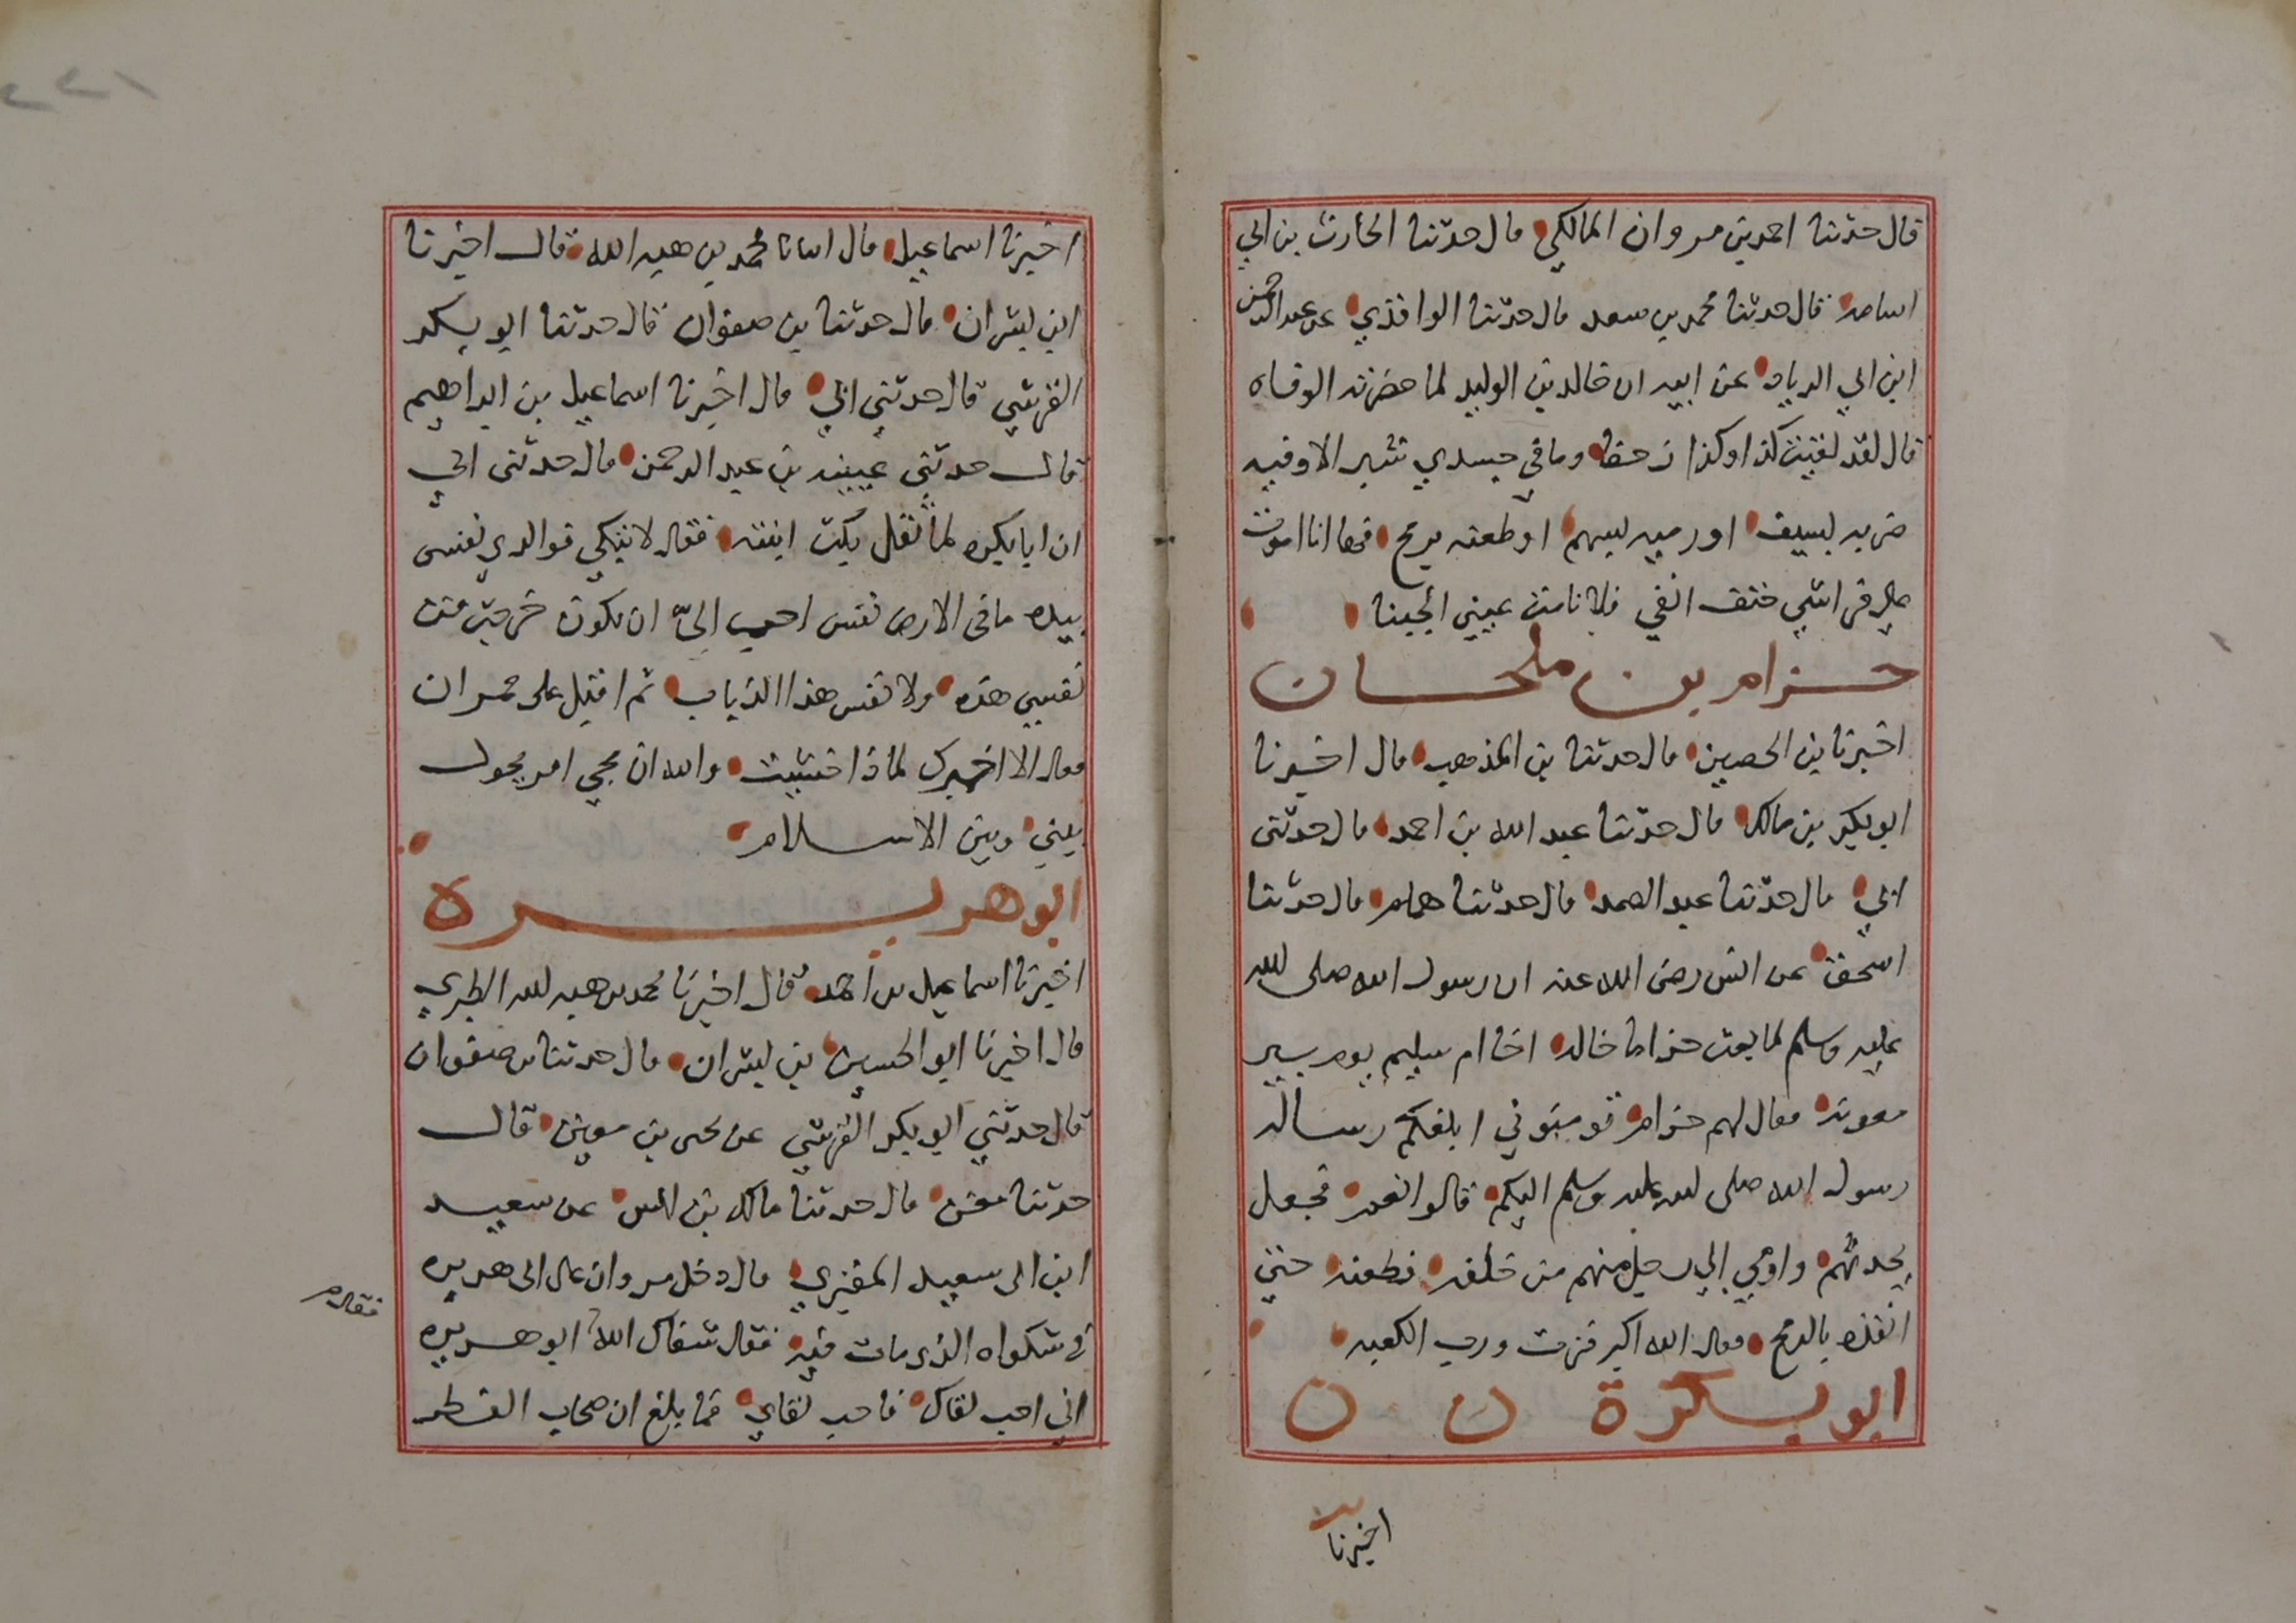 قال حدثنا احمد بن مروان المالكي قال حدثنا الحارث بن ابي
اسامه قال حدثنا محمد بن سعد قال حدثنا الواقدي عن عبد الرحمن
ابن ابي الزياد عن ابيه ان خالد بن الوليد لما حضرته الوفاه
قال لقد لقيت كذا وكذا زحفا وما في جسدي شبر الا وفيه
ضربه بسيف او رميه بسهم او طعنه برمح فها انا اموت
على فراشي حتف انفي فلا نامت عيني الجبنا
حزام بن ملحان
اخبرنا بن الحصين قال حدثنا بن المذهب قال اخبرنا
ابو بكر بن مالك قال حدثنا عبد الله بن احمد قال حدثني
ابي قال حدثنا عبد الصمد قال حدثنا همام قال حدثنا
اسحق عن انس رضى الله عنه ان رسول الله صلى الله
عليه وسلم لما بعث حزاما خاله اخا ام سليم يوم بير
معونه فقال لهم حزام تومنوني ابلغكم رساله
رسول الله صلى الله عليه وسلم اليكم قالوا نعم فجعل
يحدثهم واومي الي رجل منهم من خلفه فطعنه حتي
انفذه بالرمح فقال الله اكبر فزت ورب الكعبه
ابو بكرة ن ن
اخبرنا
٢٢١
اخبرنا اسماعيل قال انبانا محمد بن هبه الله قال اخبرنا
ابن بشران قال حدثنا بن صفوان قال حدثنا ابو بكر
القرشي قال حدثني ابي قال اخبرنا اسماعيل بن ابراهيم
قال حدثني عيينه بن عبد الرحمن قال حدثنى ابي
ان ابا بكره لما ثقل بكت ابنته فقال لا تبكي فوالدي نفسى
بيده ما فى الارض نفس احب اليّ ان تكون خرجت من
نفسي هذه ولا نفس هذا الذباب ثم اقبل على حمران
فقال الا اخبرك لماذا خشيت والله ان يجي امر يحول
بيني وبين الاسلام
ابو هريرة
اخبرنا اسماعيل بن احمد قال اخبرنا محمد بن هبه الله الطبري
قال اخبرنا ابو الحسين بن بشران قال حدثنا بن صفوان
قال حدثني ابو بكر القرشي عن يحى بن معين قال
حدثنا معن قال حدثنا مالك بن انس عن سعيد
ابن ابى سعيد المقبري قال دخل مروان على ابى هريره
فى شكواه الذى مات فيه فقال شفاك الله ابو هريره
فقال م
اني احب لقاك فاحب لقاي فما بلغ ان صحاب القطر